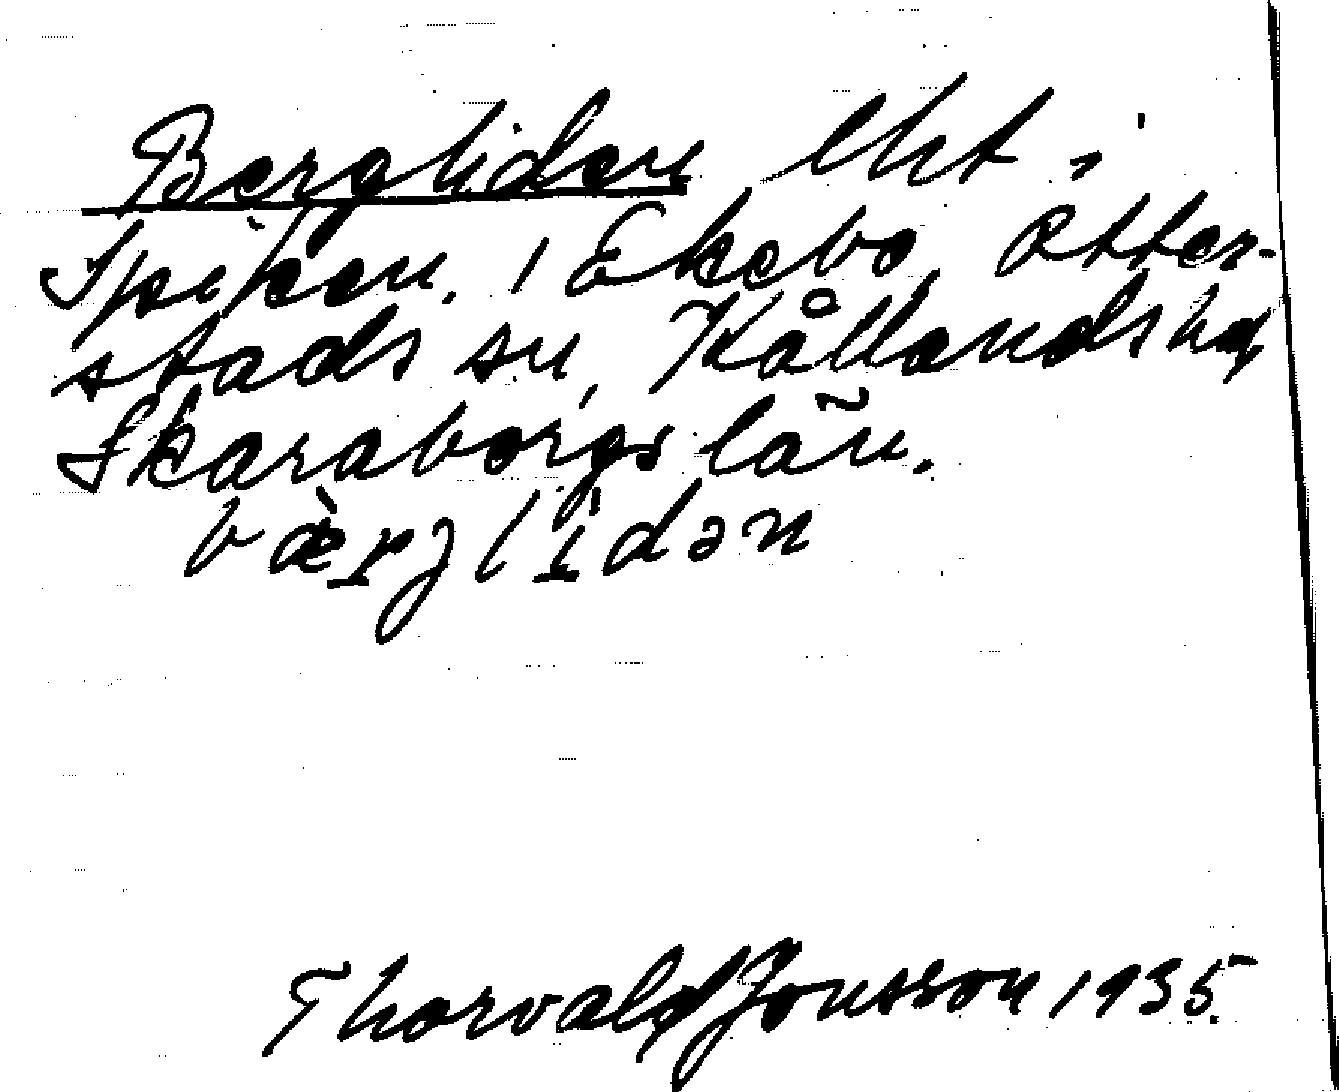 Bergliden, lht i
Spiken, 1 Ekebo, Otter-
stads sn, Kållandshd,
Skaraborgs län.
bæ̀rgli̇dən
Thorvald Jonsson 1935.